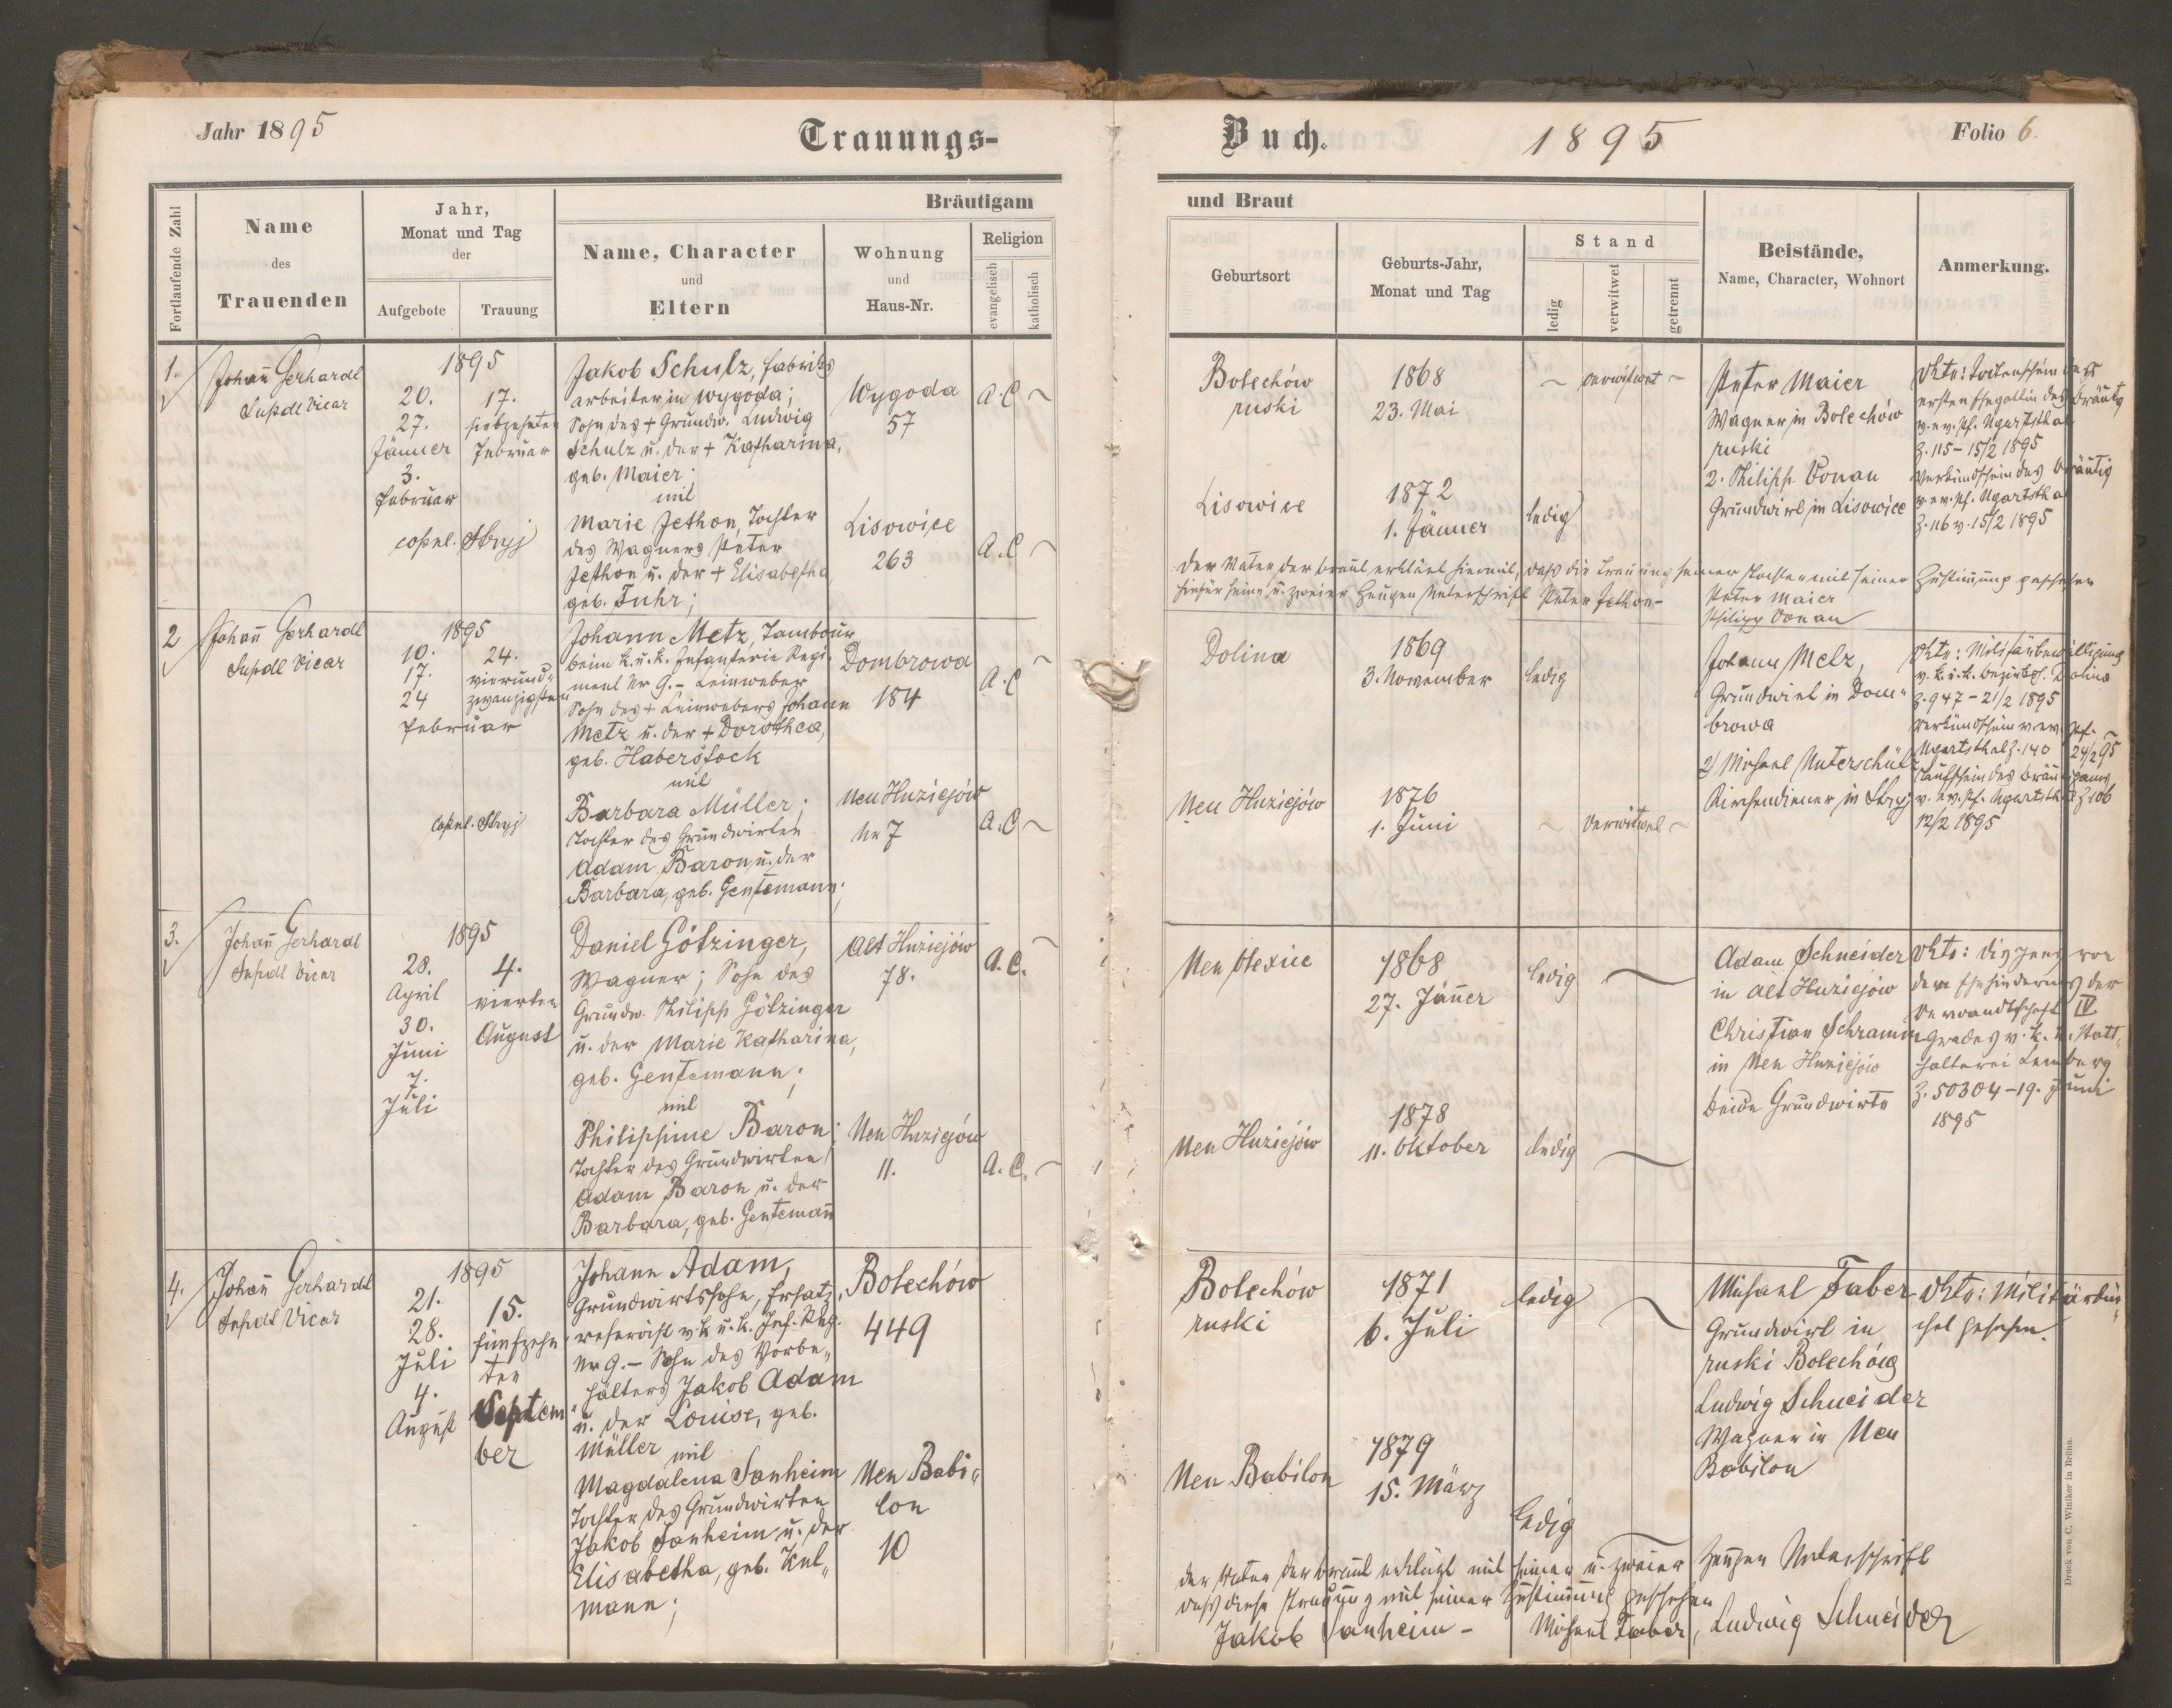 Jahr 1895
Trauungs-
Buch.
1895
Folio 6.
Fortlaufende Zahl
Name
des
Trauenden
Jahr,
Monat und Tag
der
Aufgebote
Trauung
Bräutigam
Name, Character
und
Eltern
Wohnung
und
Haus-Nr.
Religion
evangelisch
katholisch
und Braut
Geburtsort
Geburts-Jahr,
Monat und Tag
Stand
ledig
verwitwet
getrennt
Beistände,
Name, Character, Wohnort
Anmerkung.
1.
Johann Gerhardt
Supdl Vicar
1895
20.
27.
Jänner
3.
Februar
17.
siebzehnten
Februar
copul. Stryj
Jakob Schulz, Fabriks
arbeiter in Wygoda;
Sohn des + Grundw. Ludwig
Schulz u. der + Katharina,
geb. Maier;
mit
Marie Jethon, Tochter
des Wagners Peter
Jethon u. der + Elisabetha
geb. Fuhr;
Wygoda
57
A.C ~
Lisowice
263
A.C ~
Bolechów
ruski
1868
23. Mai
~ verwitwet ~
Lisowice
1872
1. Jänner
ledig
Peter Maier
Wagner in Bolechów
ruski
2. Philipp Vonau
Grundwirt in Lisowice
Akte: Totenschein der
ersten Ehegattin des Bräutg
v. ev. Pf. Ugartsthal
Z. 115 - 15/2 1895
Verkündschein des Bräutig
v. ev. Pf. Ugartsthal
Z. 116 v. 15/2 1895
Der Vater der Braut erklärt hiermit, daß die Trauung seiner Tochter mit seiner Zustimmung geschehen
hiefür seine u. zweier Zeugen Unterschrift Peter Jethon -
Peter Maier
Philipp Vonau
2
Johann Gerhardt
Supdl Vicar
1895
10.
17.
24
Februar
24.
vierund-
zwanzigsten
copul. Stryj
Johann Metz, Tambour
beim k. u. k. Infanterie Regi-
ment Nr 9. - Leinweber
Sohn des + Leinwebers Johann
Metz u. der + Dorothea,
geb. Haberstock
mit
Barbara Müller;
Tochter des Grundwirten
Adam Baron u. der
Barbara, geb. Gentemann;
Dombrowa
184
A.C ~
Neu Huziejów
Nr 7
A.C ~
Dolina
1869
3. November
ledig
Neu Huziejów
1876
1. Juni
~ verwitwet ~
Johann Metz,
Grundwirt in Dom-
browa
2) Michael Unterschütz
Kirchendiener in Stryj
Akte: Militärbewilligung
v. k. u. k. Bezirksh. Dolina
Z. 947 - 21/2 1895
Verkündschein v. ev. Pf.
Ugartsthal Z. 140 24/2 95
Taufschein des Bräutigams
v. ev. Pf. Ugartsthal Z 106
12/2 1895
3.
Johann Gerhardt
Supdl Vicar
1895
28.
April
30.
Juni
7.
Juli
4.
vierten
August
Daniel Götzinger,
Wagner; Sohn des
Grundw. Philipp Götzinger
u. der Marie Katharina,
geb. Gentemann;
mit
Philippine Baron;
Tochter des Grundwirten
Adam Baron u. der
Barbara, geb. Gentemann
Alt Huziejów
78.
A.C. ~
Neu Huziejów
11.
A.C. ~
Neu Olexice
1868
27. Jänner
ledig ~
Neu Huziejów
1878
11. Oktober
ledig ~
Adam Schneider
in Alt Huziejów
Christian Schramm
in Neu Huziejów
beide Grundwirte
Akte: Dispens von
dem Ehehindernis der
Verwandtschaft IV
Grades v. k. k. Statt-
halterei Lemberg
Z. 50304 - 19. Juni
1895
4.
Johann Gerhardt
Supdl Vicar
1895
21.
28.
Juli
4.
August
15.
fünfzehn
ten
Septem
ber
Johann Adam,
Grundwirtssohn, Ersatz-
reservist v. k. u. k. Inf. Reg.
Nr 9. - Sohn des Vorbe-
hälters Jakob Adam
u. der Louise, geb.
Müller mit
Magdalena Sanheim
Tochter des Grundwirten
Jakob Sanheim u. der
Elisabetha, geb. Kul-
mann;
Bolechów
449
Neu Babi-
lon
10
Bolechów
ruski
1871
6. Juli
ledig ~
Neu Babilon
1879
15. März
ledig
Michael Faber
Grundwirt in
ruski Bolechów
Ludwig Schneider
Wagner in Neu
Babilon
Akte: Militärbü-
chel gesehen.
Der Vater der Braut erklärt mit seiner u. zweier Zeugen Unterschrift
daß diese Trauung mit seiner Zustimmung geschehen
Jakob Sanheim - Michael Faber, Ludwig Schneider
Druck von C. Winiker in Brünn.